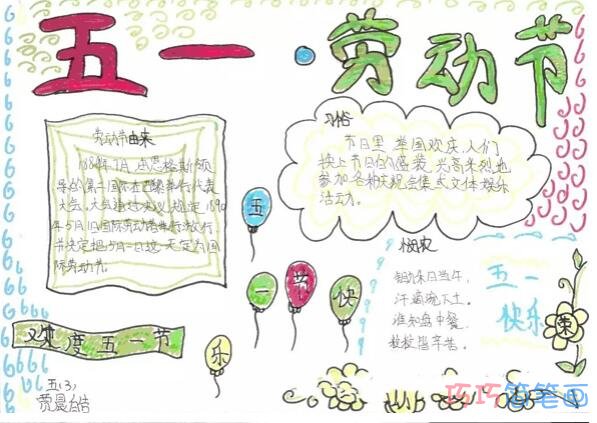 五一·劳动节
劳动节由来
1889年7月 恩格斯领
导的第二国际在巴黎举行代表
大会。大会通过决议,规定1890
年5月1日国际劳动者举行游行,
并决定把5月1日这一天定为国
际劳动节。
习俗
节日里 举国欢庆,人们
换上节日的盛装,兴高采烈地
参加各种庆祝会或文体娱乐
活动。
五
一
节
快
乐
悯农
锄禾日当午,
汗滴禾下土。
谁知盘中餐,
粒粒皆辛苦。
五一
快乐
荣
欢度五一节
五(3)
贾晨
巧巧简笔画